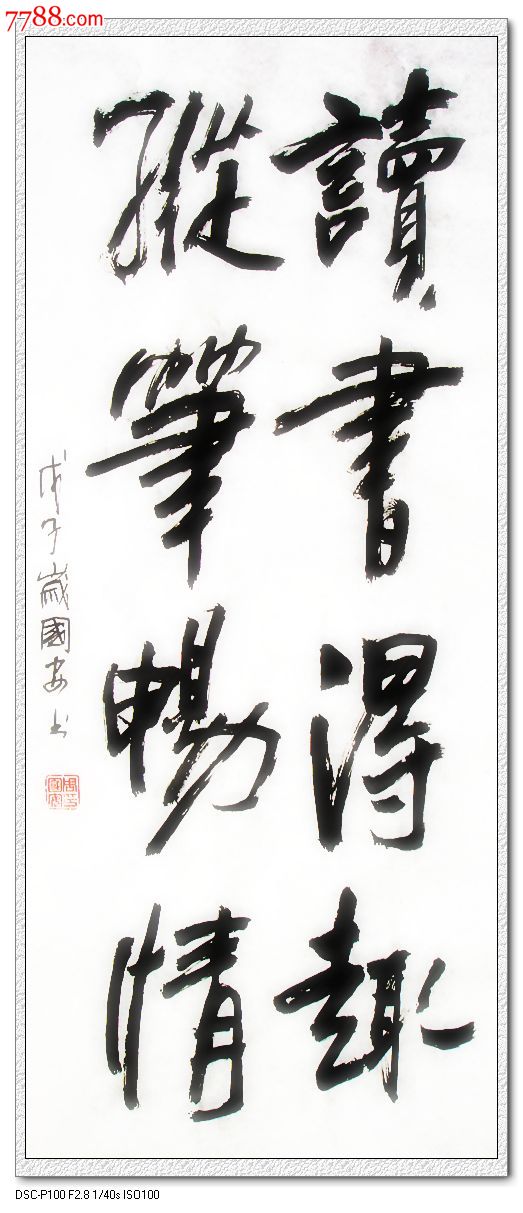 7788.com
讀書得趣
縱筆暢情
戊子歲國安书
DSC-P100 F2.8 1/40s ISO100